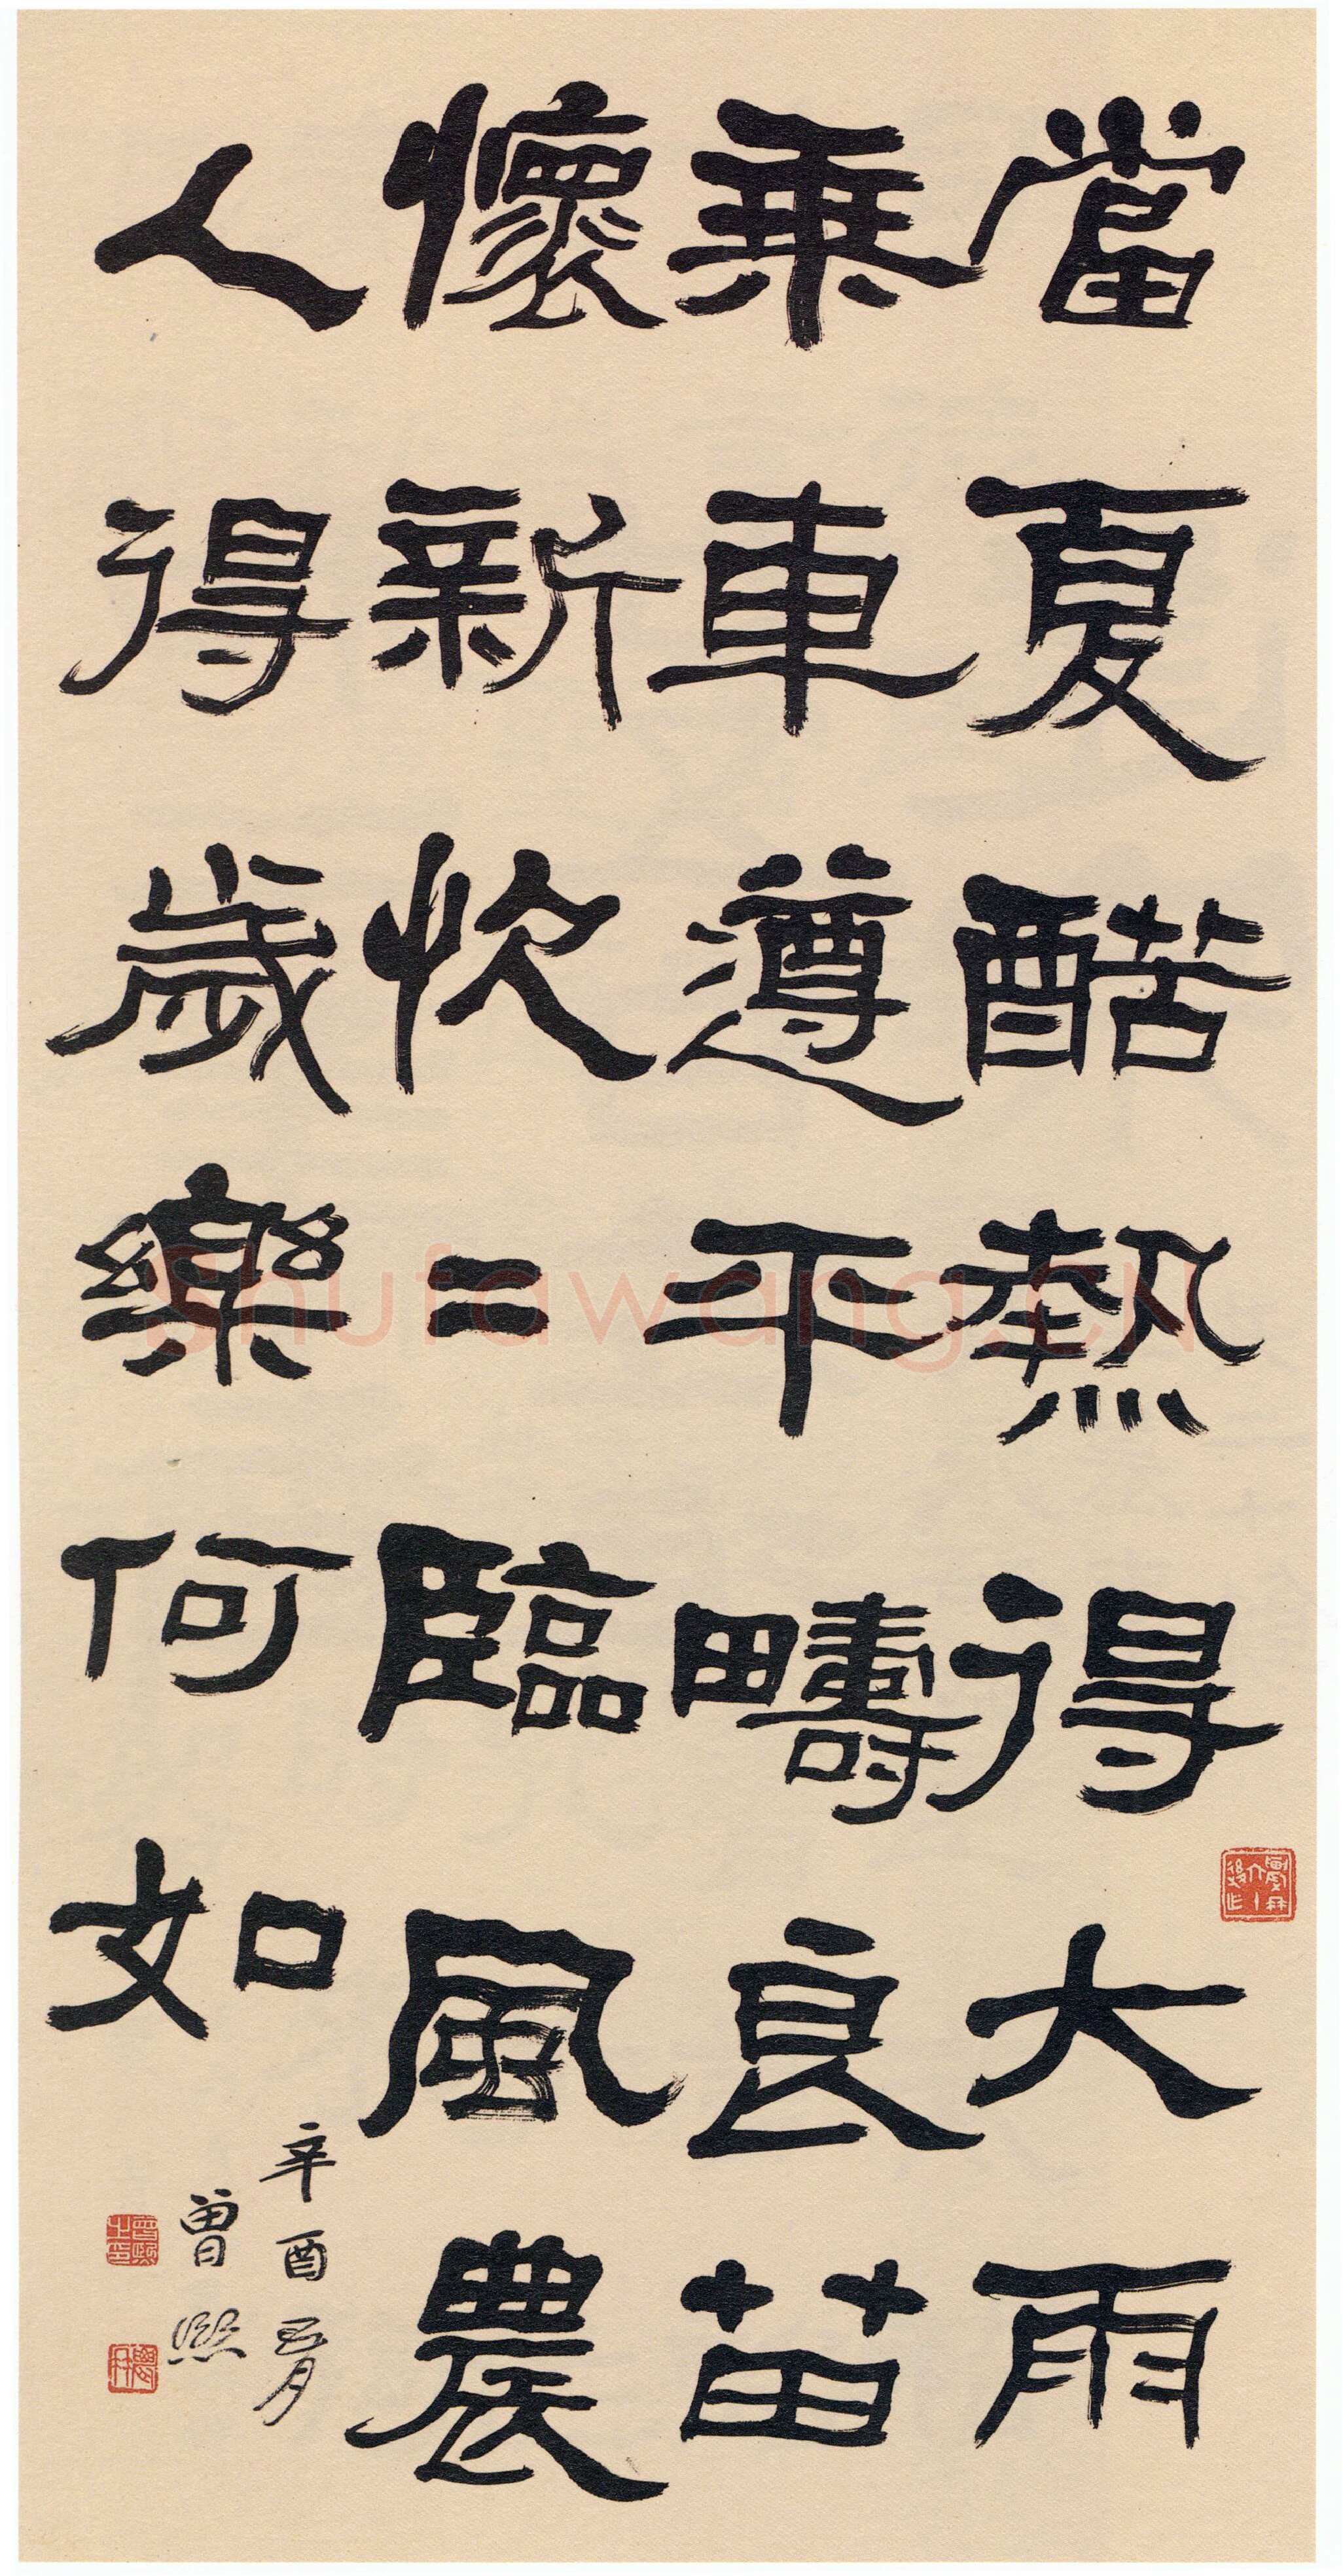 當夏酷熱得大雨
乘車遵平疇良苗
懷新忻〻臨風農
人得歲樂何如
辛酉五月
曾熙
曾熙之印
shufawang.CN